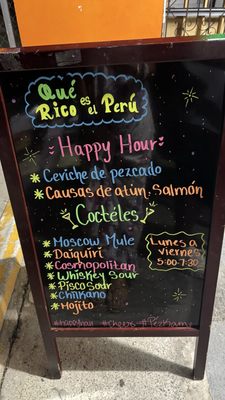 Qué
Rico es el Perú
Happy Hour
Ceviche de pezcado
Causas de atún. Salmón
Cocteles
Moscow Mule
Daiquirí
Cosmopolitan
Whiskey Sour
Pisco Sour
Chilkano
Mojito
Lunes a
viernes
5:00-7:30
#happyhour #cheers